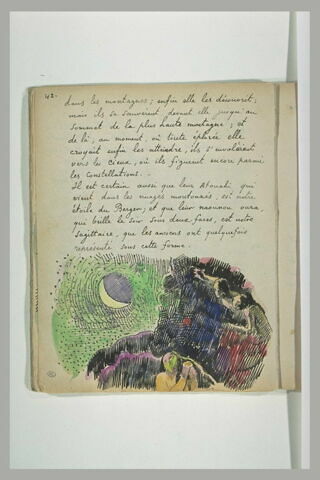 42.
dans les montagnes; enfin elle les découvrit;
mais ils se sauvèrent devant elle jusqu'au
sommet de la plus haute montagne; et
de là, au moment, où toute éplorée elle
croyait enfin les atteindre, ils s'envolèrent
vers les cieux, où ils figurent encore parmi
les constellations. -
Il est certain aussi que leur Atouahi qui
vient dans les nuages moutonnés, est notre
étoile du Berger, et que leur naounou oura,
qui brille le soir sous deux faces, est notre
Sagittaire, que les anciens ont quelquefois
représenté sous cette forme.